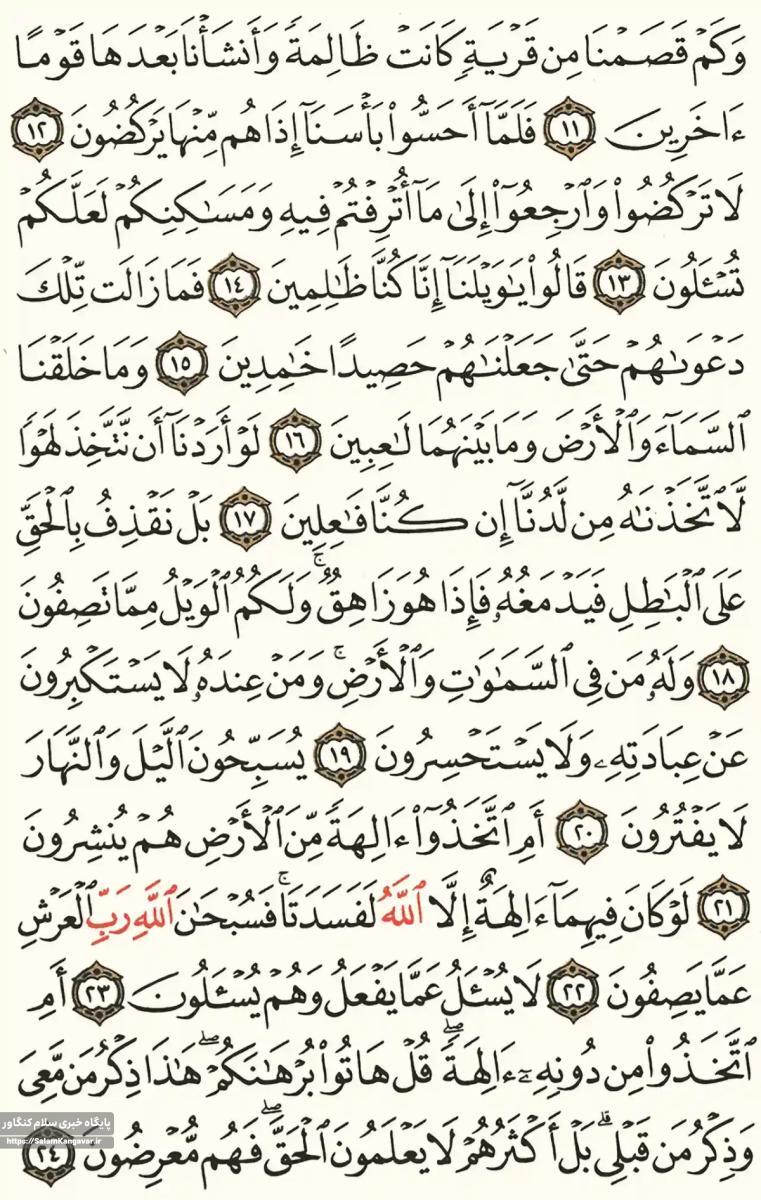 وَكَمْ قَصَمْنَا مِن قَرْيَةٍ كَانَتْ ظَالِمَةً وَأَنشَأْنَا بَعْدَهَا قَوْمًا
ءَاخَرِينَ ١١ فَلَمَّآ أَحَسُّوا۟ بَأْسَنَآ إِذَا هُم مِّنْهَا يَرْكُضُونَ ١٢
لَا تَرْكُضُوا۟ وَٱرْجِعُوٓا۟ إِلَىٰ مَآ أُتْرِفْتُمْ فِيهِ وَمَسَـٰكِنِكُمْ لَعَلَّكُمْ
تُسْـَٔلُونَ ١٣ قَالُوا۟ يَـٰوَيْلَنَآ إِنَّا كُنَّا ظَـٰلِمِينَ ١٤ فَمَا زَالَت تِّلْكَ
دَعْوَىٰهُمْ حَتَّىٰ جَعَلْنَـٰهُمْ حَصِيدًا خَـٰمِدِينَ ١٥ وَمَا خَلَقْنَا
ٱلسَّمَآءَ وَٱلْأَرْضَ وَمَا بَيْنَهُمَا لَـٰعِبِينَ ١٦ لَوْ أَرَدْنَآ أَن نَّتَّخِذَ لَهْوًا
لَّٱتَّخَذْنَـٰهُ مِن لَّدُنَّآ إِن كُنَّا فَـٰعِلِينَ ١٧ بَلْ نَقْذِفُ بِٱلْحَقِّ
عَلَى ٱلْبَـٰطِلِ فَيَدْمَغُهُۥ فَإِذَا هُوَ زَاهِقٌ ۚ وَلَكُمُ ٱلْوَيْلُ مِمَّا تَصِفُونَ
١٨ وَلَهُۥ مَن فِى ٱلسَّمَـٰوَٰتِ وَٱلْأَرْضِ ۚ وَمَنْ عِندَهُۥ لَا يَسْتَكْبِرُونَ
عَنْ عِبَادَتِهِۦ وَلَا يَسْتَحْسِرُونَ ١٩ يُسَبِّحُونَ ٱلَّيْلَ وَٱلنَّهَارَ
لَا يَفْتُرُونَ ٢٠ أَمِ ٱتَّخَذُوٓا۟ ءَالِهَةً مِّنَ ٱلْأَرْضِ هُمْ يُنشِرُونَ
٢١ لَوْ كَانَ فِيهِمَآ ءَالِهَةٌ إِلَّا ٱللَّهُ لَفَسَدَتَا ۚ فَسُبْحَـٰنَ ٱللَّهِ رَبِّ ٱلْعَرْشِ
عَمَّا يَصِفُونَ ٢٢ لَا يُسْـَٔلُ عَمَّا يَفْعَلُ وَهُمْ يُسْـَٔلُونَ ٢٣ أَمِ
ٱتَّخَذُوا۟ مِن دُونِهِۦٓ ءَالِهَةً ۖ قُلْ هَاتُوا۟ بُرْهَـٰنَكُمْ ۖ هَـٰذَا ذِكْرُ مَن مَّعِىَ
وَذِكْرُ مَن قَبْلِى ۗ بَلْ أَكْثَرُهُمْ لَا يَعْلَمُونَ ٱلْحَقَّ ۖ فَهُم مُّعْرِضُونَ ٢٤
پایگاه خبری سلام کنگاور
https://SalamKangavar.ir